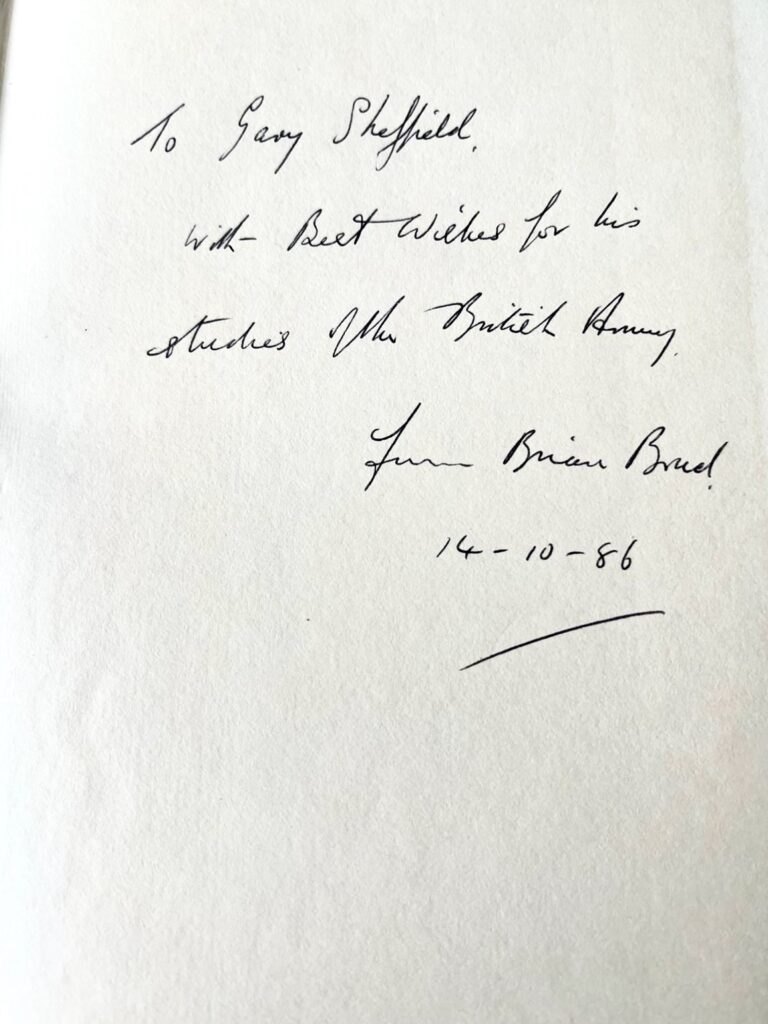 To Gary Sheffield.
with Best Wishes for his
studies of the British Army.
from Brian Bond.
14-10-86